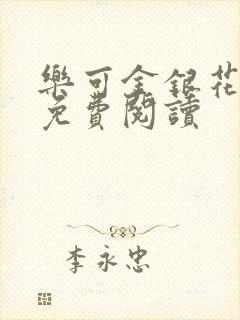 樂可金銀花
免費閱讀
李永忠